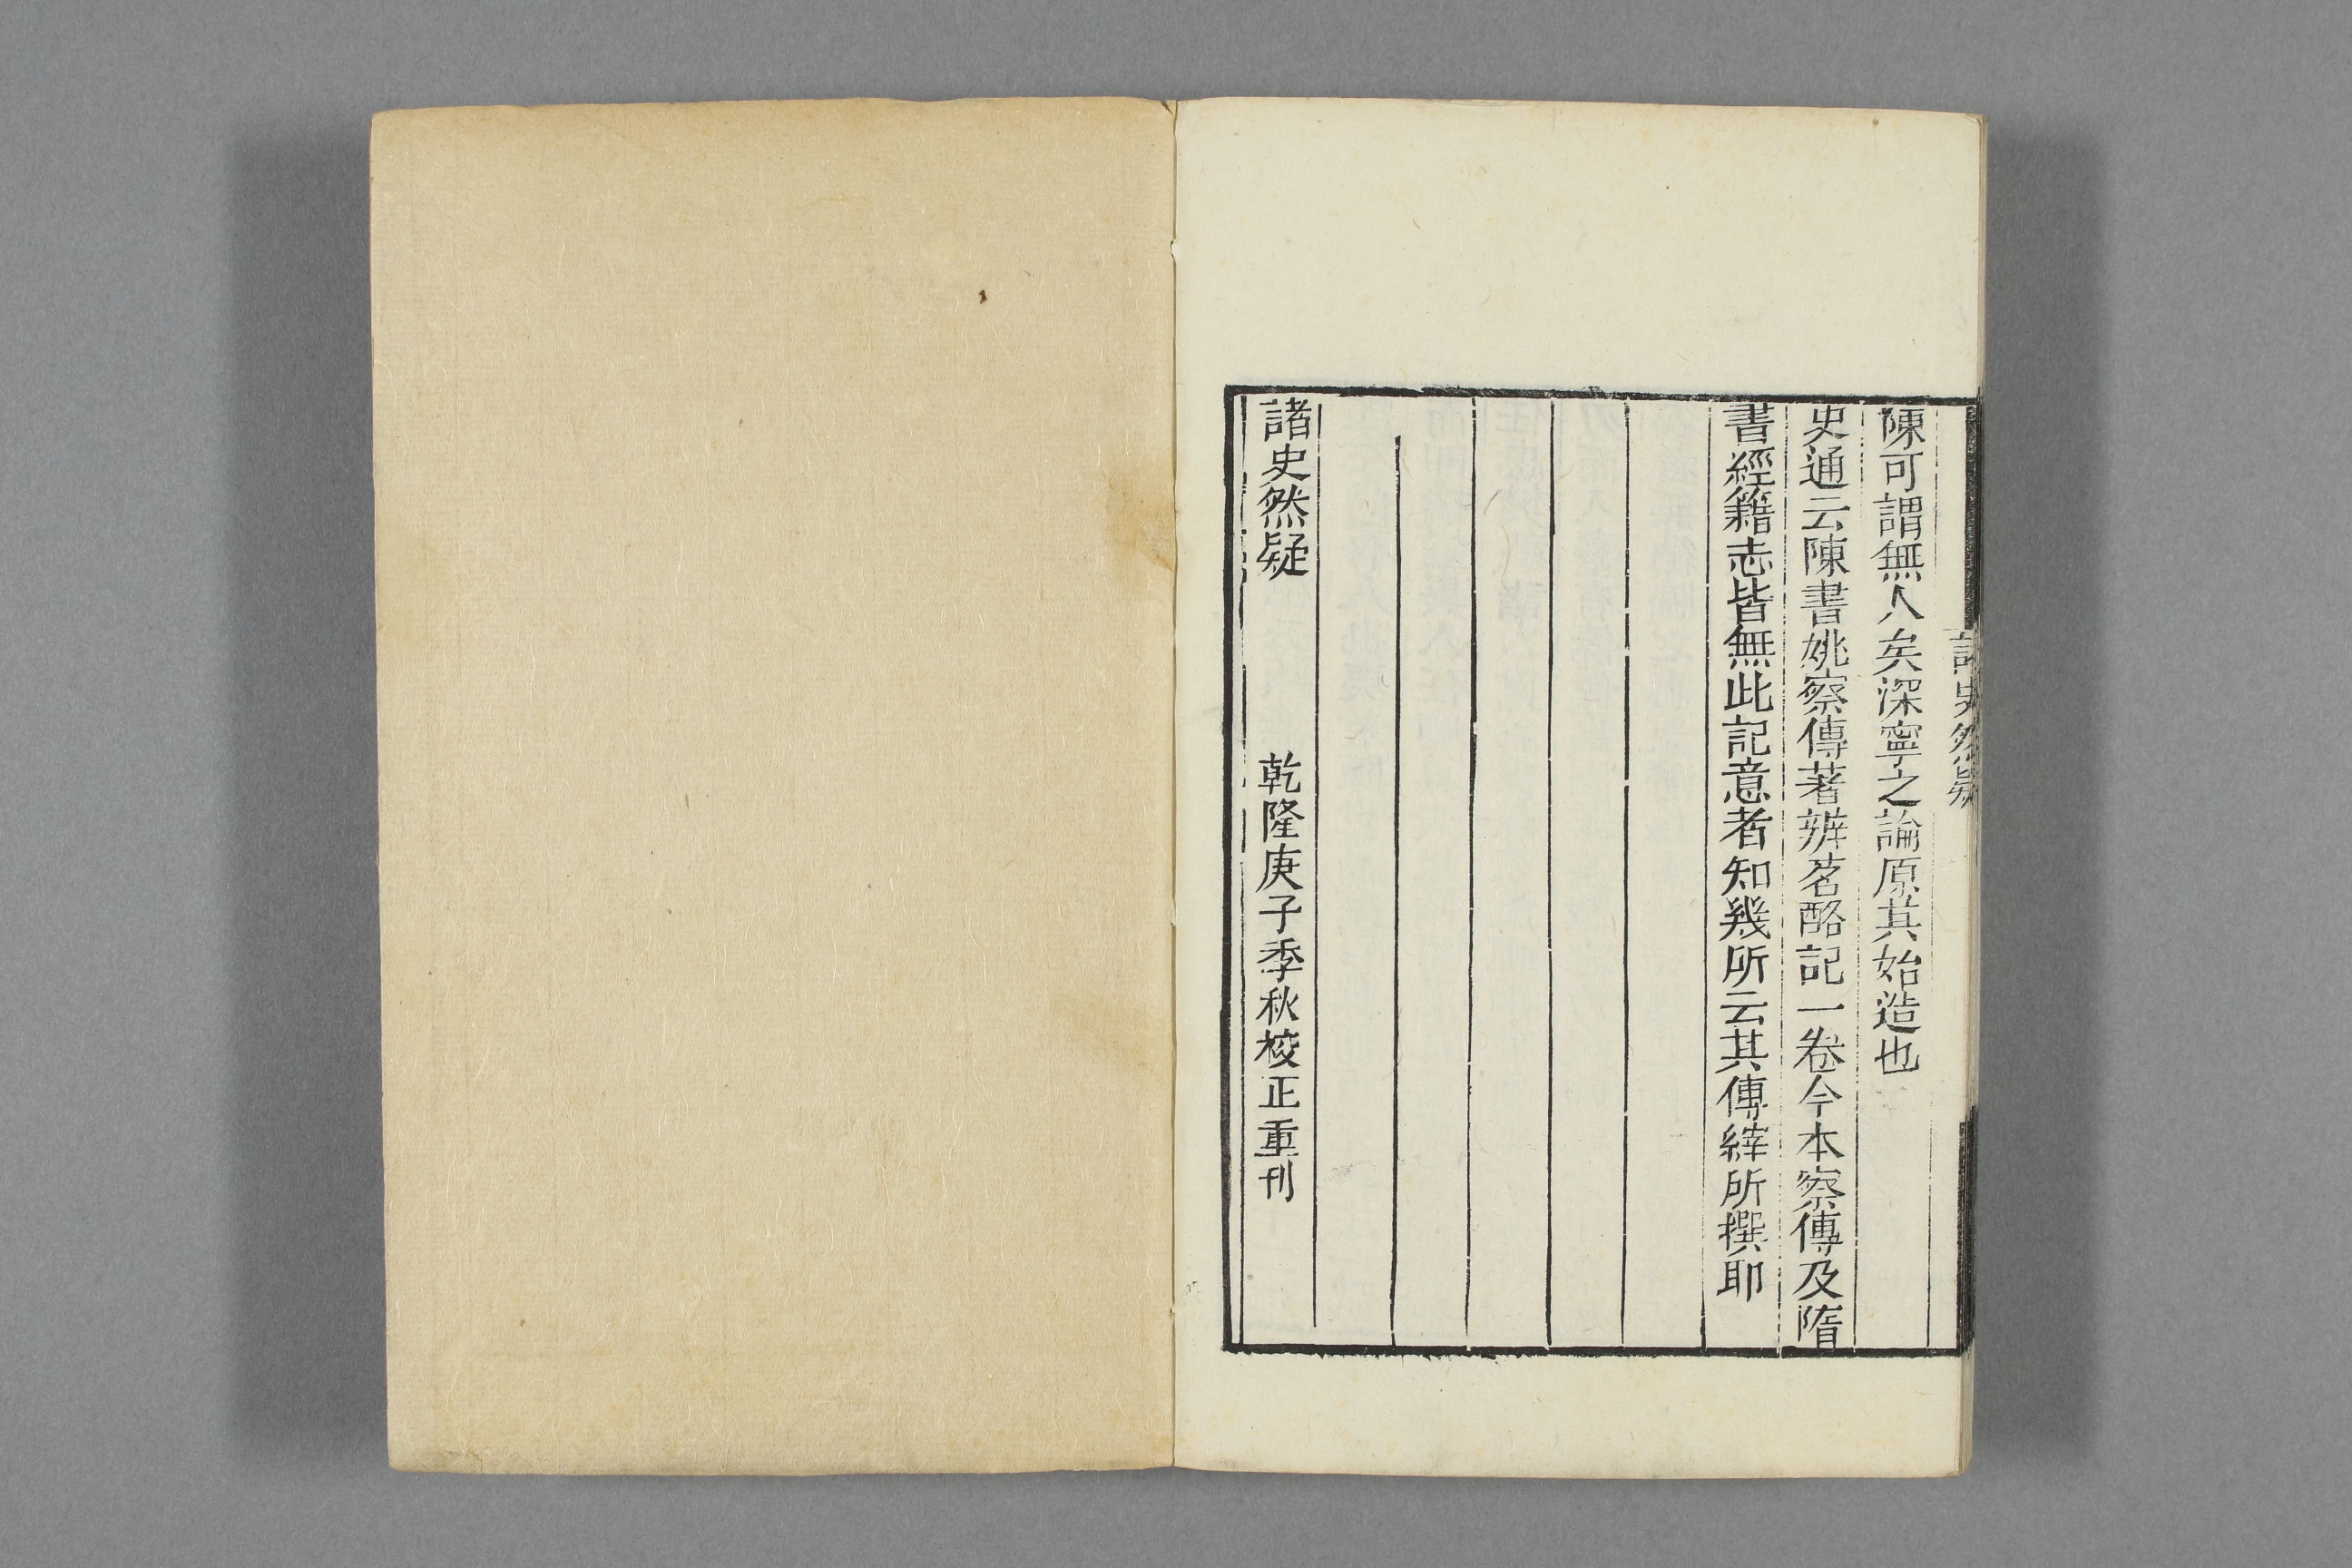 諸史然疑
陳可謂無人矣深寧之論原其始造也
史通云陳書姚察傳著辨茗酪記一卷今本察傳及隋
書經籍志皆無此記意者知幾所云其傳縡所撰耶
諸史然疑 乾隆庚子季秋校正重刊